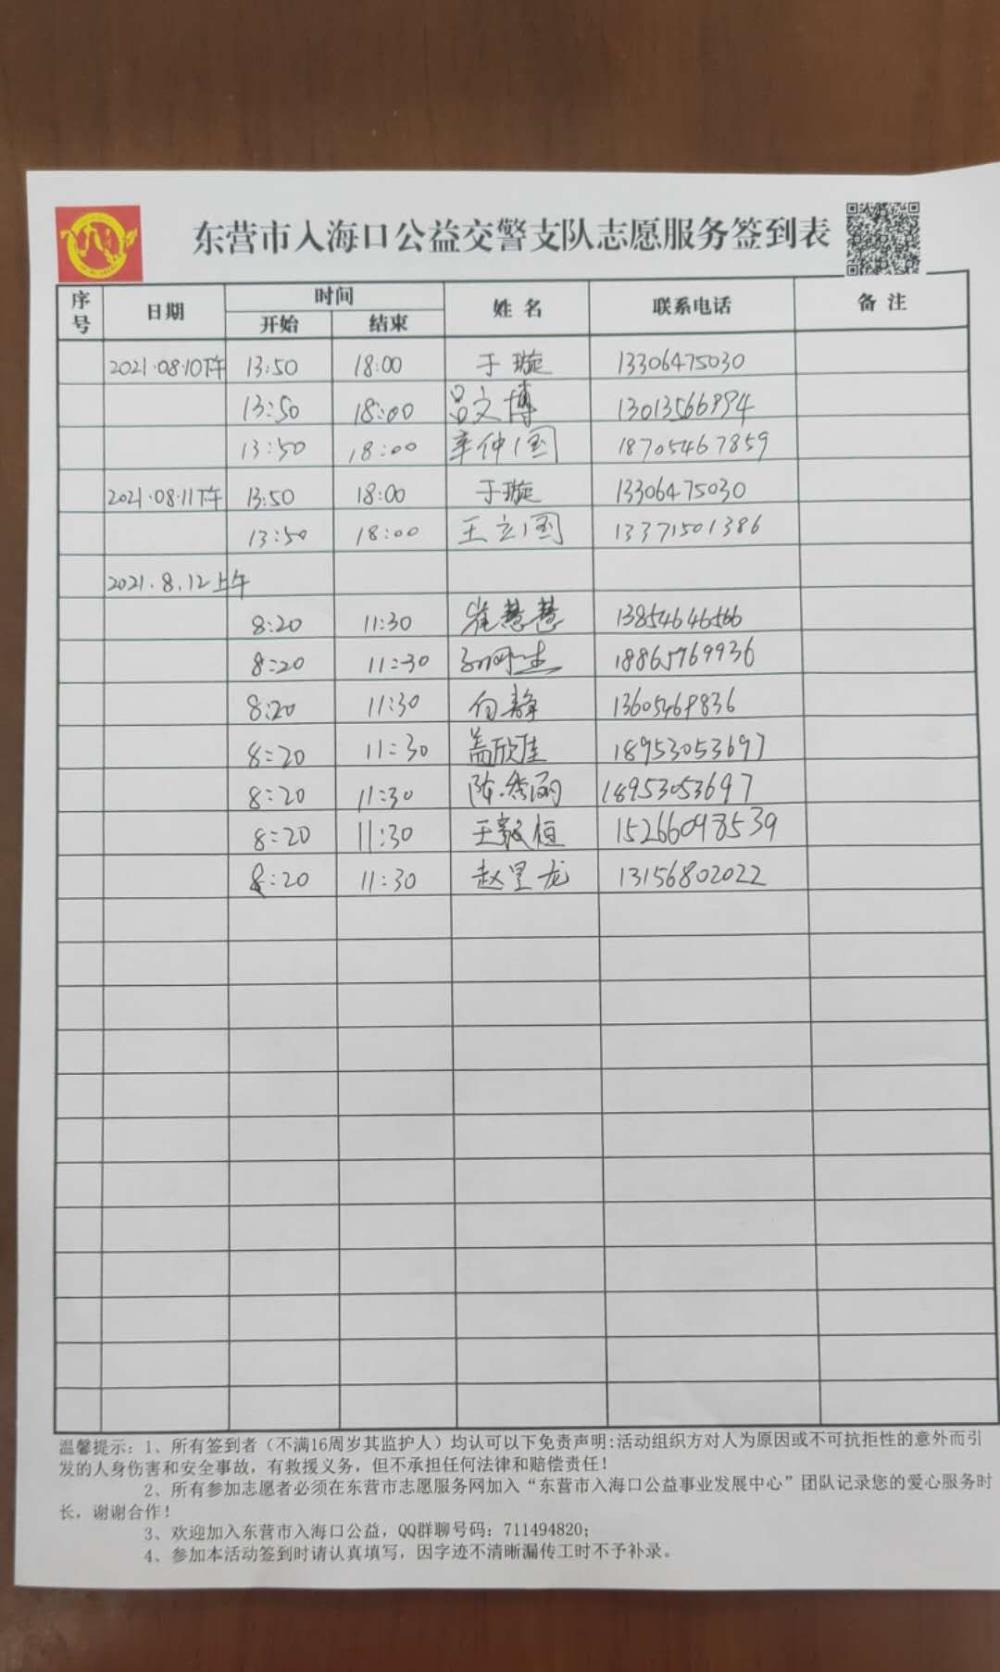 东营市入海口公益交警支队志愿服务签到表
序号 日期 时间 姓名 联系电话 备注
开始 结束
2021.08.10下午 13:50 18:00 于璇 13306475030
13:50 18:00 吕文博 13013566994
13:50 18:00 辛仲国 18705467859
2021.08.11下午 13:50 18:00 于璇 13306475030
13:50 18:00 王立国 13371501386
2021.8.12上午
8:20 11:30 崔慧慧 13854646566
8:20 11:30 18865769936
8:20 11:30 向静 13605469836
8:20 11:30 盖欣佳 18953053697
8:20 11:30 陈秀丽 18953053697
8:20 11:30 王毅恒 15266098539
8:20 11:30 赵呈龙 13156802022
温馨提示：1、所有签到者（不满16周岁其监护人）均认可以下免责声明:活动组织方对人为原因或不可抗拒性的意外而引
发的人身伤害和安全事故，有救援义务，但不承担任何法律和赔偿责任！
2、所有参加志愿者必须在东营市志愿服务网加入“东营市入海口公益事业发展中心”团队记录您的爱心服务时
长，谢谢合作！
3、欢迎加入东营市入海口公益，QQ群聊号码：711494820；
4、参加本活动签到时请认真填写，因字迹不清晰漏传工时不予补录。